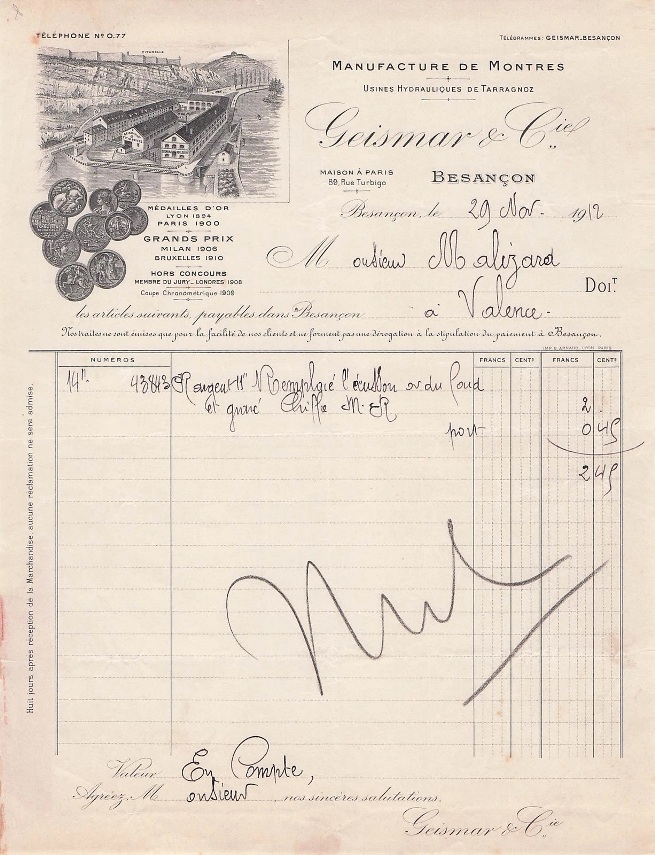 TÉLÉPHONE Nº 0.77
TÉLÉGRAMMES: GEISMAR_BESANÇON
CITADELLE
MANUFACTURE DE MONTRES
USINES HYDRAULIQUES DE TARRAGNOZ
Geismar & Cie
MAISON À PARIS
89, Rue Turbigo
BESANÇON
MÉDAILLES D'OR
LYON 1894
PARIS 1900
GRANDS PRIX
MILAN 1906
BRUXELLES 1910
HORS CONCOURS
MEMBRE DU JURY_LONDRES 1908
Coupe Chronométrique 1909
Besançon, le 29 Nov. 1912
Monsieur Malizard
DOIT
les articles suivants, payables dans Besançon à Valence.
Nos traites ne sont émises que pour la facilité de nos clients et ne forment pas une dérogation à la stipulation du paiement à Besançon.
NUMEROS FRANCS CENTS FRANCS CENTS
14" 43843 R argent 11" Remplacé l'écusson or du fond
et gravé Chiffre M.R 2 .
port 0 45
2 45
Nul
Huit jours après réception de la Marchandise, aucune réclamation ne sera admise.
Valeur En Compte,
Agréez, Monsieur, nos sincères salutations.
Geismar & Cie